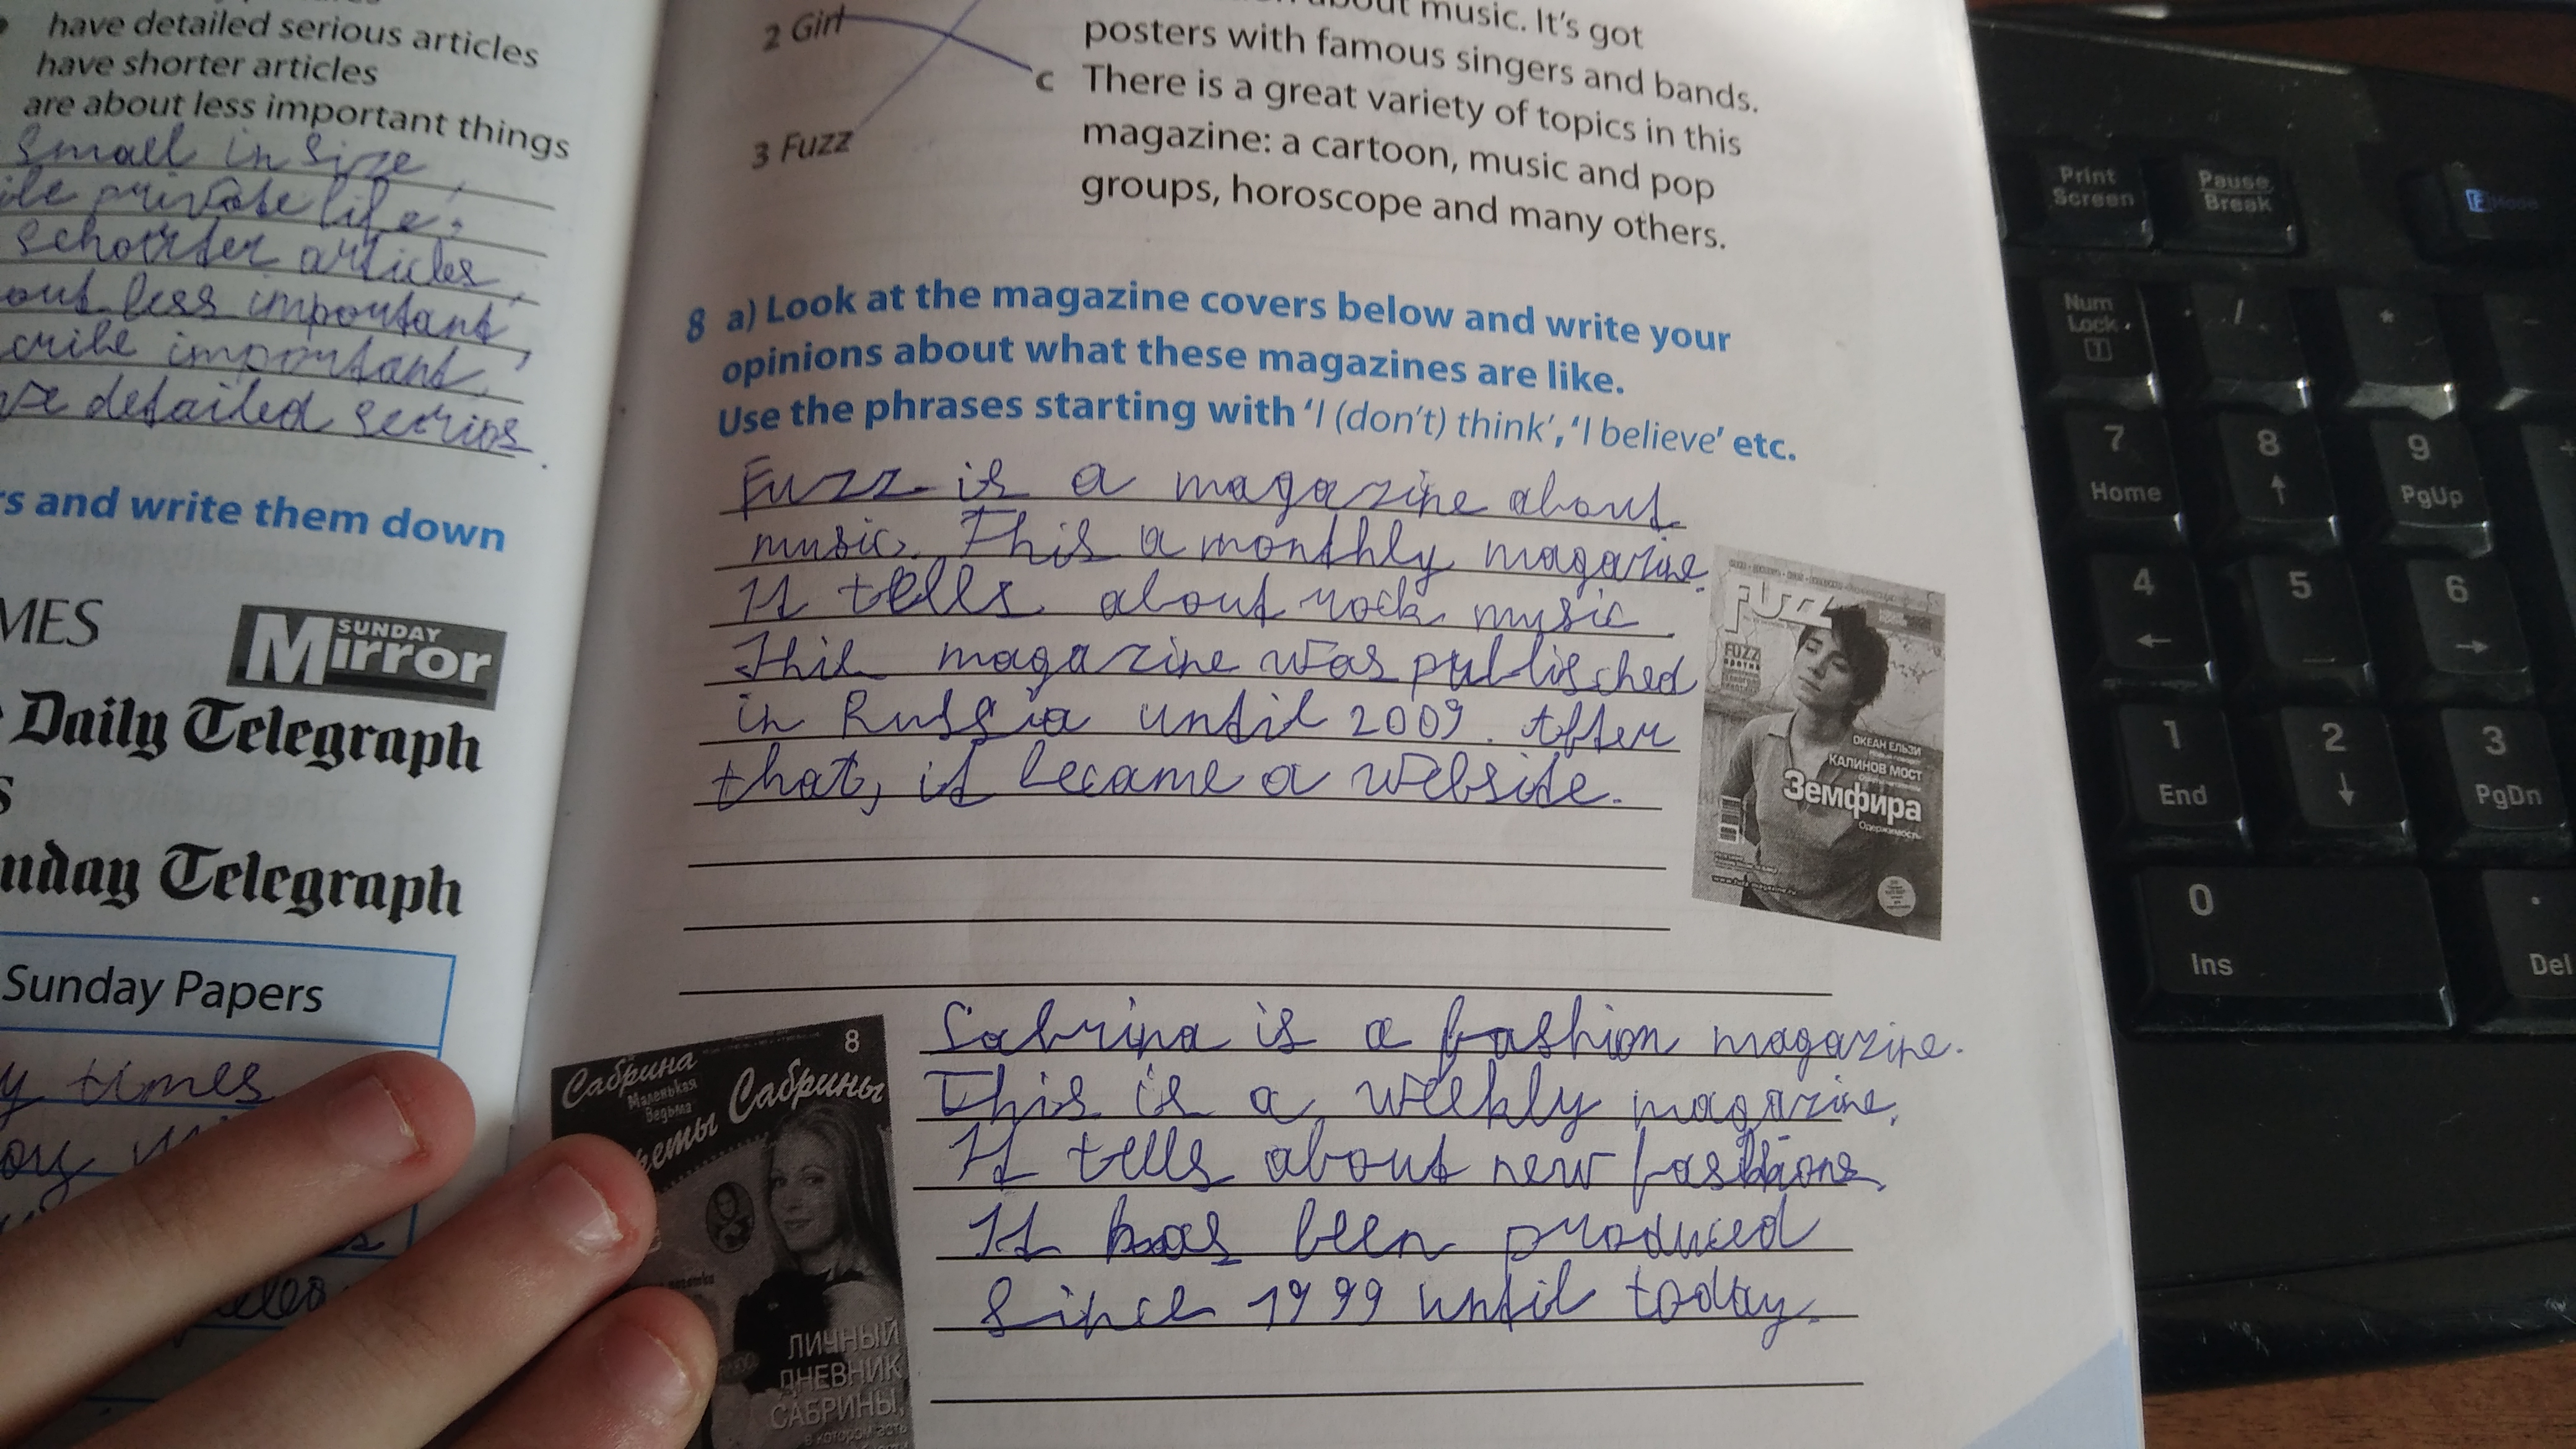 have detailed serious articles
have shorter articles
are about less important things
small in size,
private life;
schorter articles,
out less important,
cribe important,
detailed serrios.
s and write them down
MES
SUNDAY
Mirror
Daily Telegraph
S
nday Telegraph
Sunday Papers
y times
2 Girl
3 Fuzz
about music. It's got
posters with famous singers and bands.
c There is a great variety of topics in this
magazine: a cartoon, music and pop
groups, horoscope and many others.
8 a) Look at the magazine covers below and write your
opinions about what these magazines are like.
Use the phrases starting with 'I (don't) think', 'I believe' etc.
Fuzz is a magazine about
music. This a monthly magazine.
It tells about rock music.
This magazine was publisched
in Russia until 2009. After
that, it became a website.
FUZZ
FUZZ
против
ОКЕАН ЕЛЬЗИ
КАЛИНОВ МОСТ
Земфира
Одержимость
Sabrina is a fashion magazine.
This is a weekly magazine.
It tells about new fashions.
It has been produced
since 1999 until today.
8
Сабрина
Маленькая
Ведьма
кеты Сабрины
ЛИЧНЫЙ
ДНЕВНИК
САБРИНЫ,
в котором есть
Print
Screen
Pause
Break
Num
Lock
/
*
7
Home
8
↑
9
PgUp
4
←
5
6
→
1
End
2
↓
3
PgDn
0
Ins
.
Del